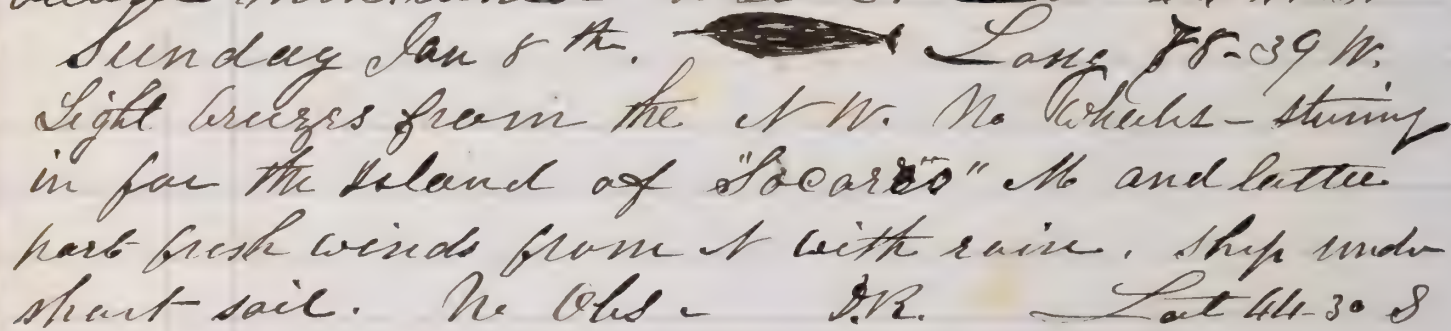 Sunday Jan 8 th. Long 78-39 W.
Light breezes from the N W. No Whales - stering
in for the Island of "Socoro" M and latter
part fresh winds from N with rain. Ship under
short sail. No Obs - D.R. Lat 44-30 S